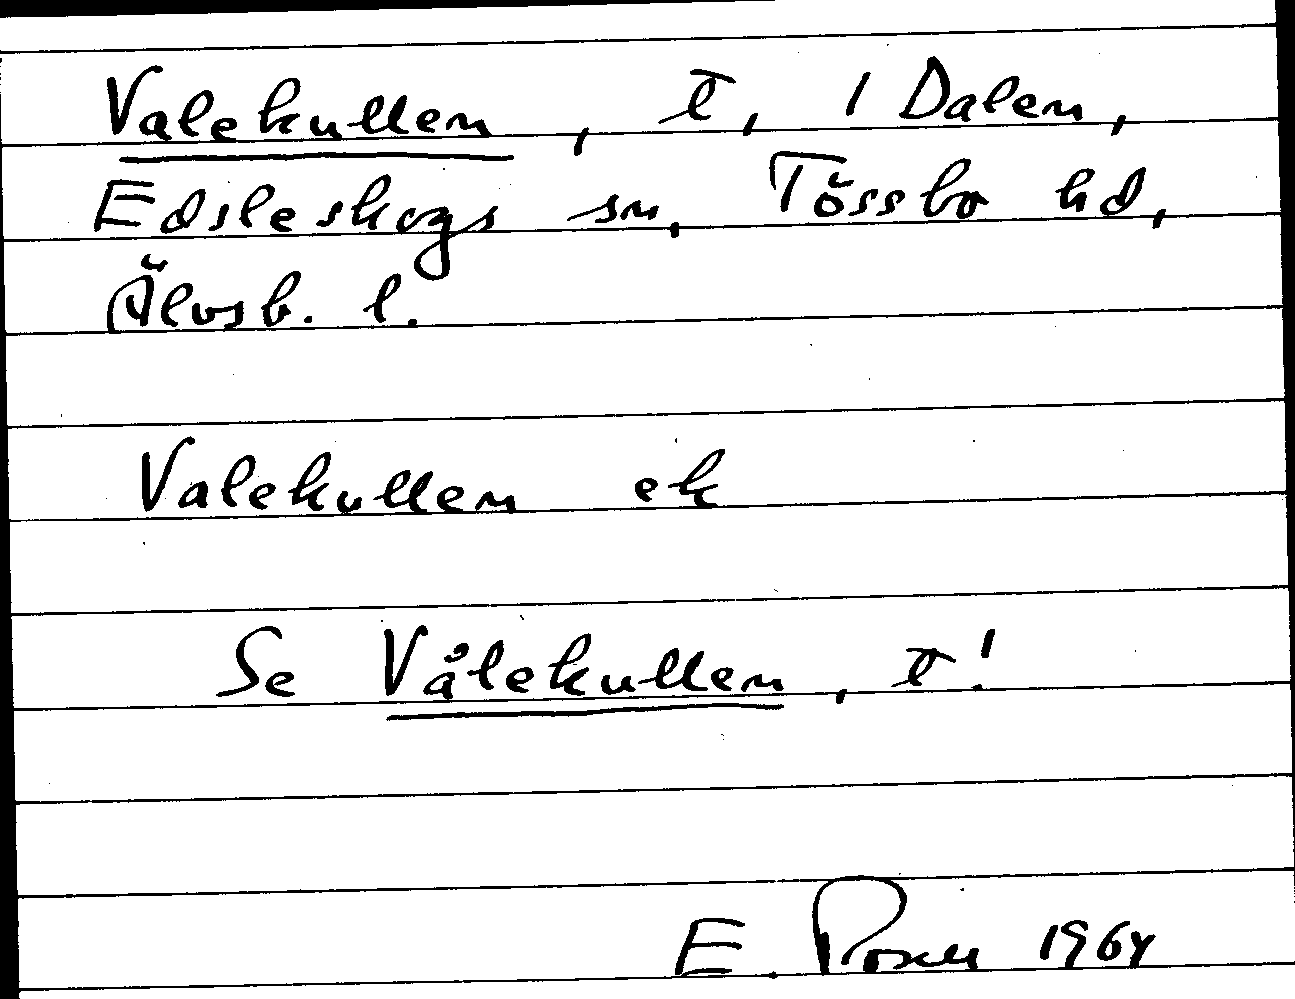 Valekullen, t, 1 Dalen,
Edsleskogs sn, Tössbo hd,
Älvsb. l.
Valekullen ek
Se Vålekullen, t!
E. 1964